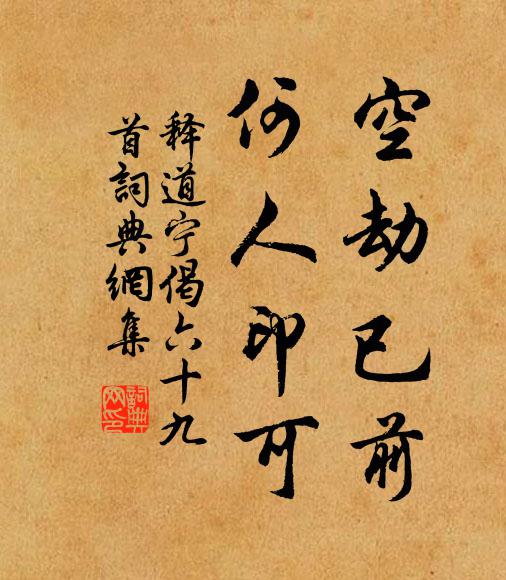 空劫已前
何人印可
释道宁偈六十九
首詞典網集
詞典
网印